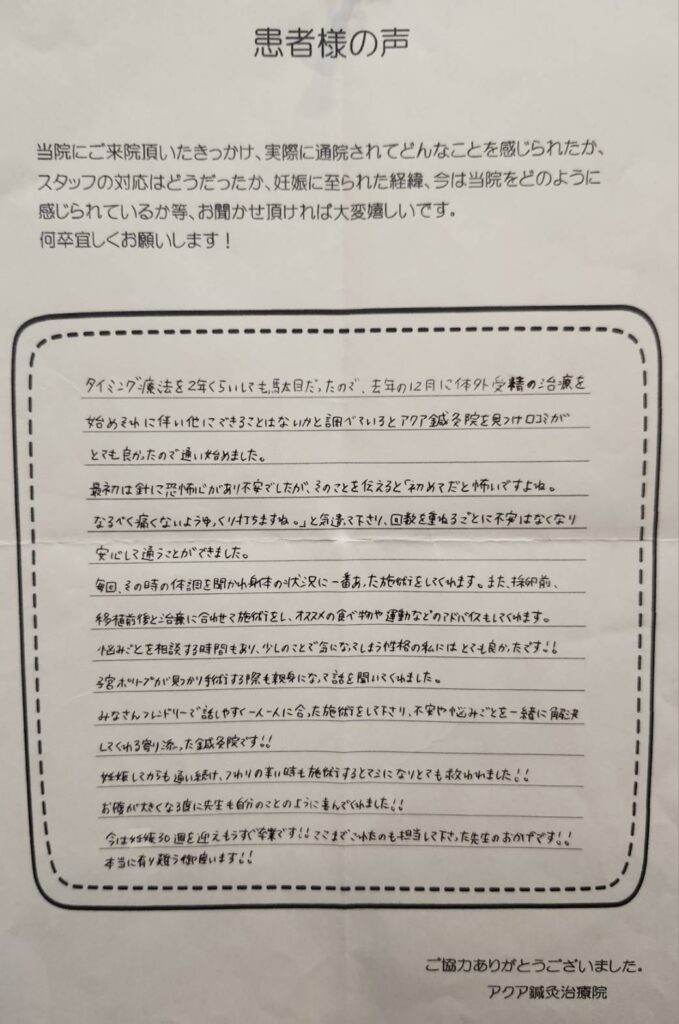 患者様の声
当院にご来院頂いたきっかけ、実際に通院されてどんなことを感じられたか、
スタッフの対応はどうだったか、妊娠に至られた経緯、今は当院をどのように
感じられているか等、お聞かせ頂ければ大変嬉しいです。
何卒宜しくお願いします！
タイミング療法を2年くらいしても駄目だったので、去年の12月に体外受精の治療を
始めそれに伴い他にできることはないかと調べているとアクア鍼灸院を見つけ口コミが
とても良かったので通い始めました。
最初は針に恐怖心があり不安でしたが、そのことを伝えると「初めてだと怖いですよね。
なるべく痛くないようゆっくり打ちますね。」と気遣って下さり、回数を重ねるごとに不安はなくなり
安心して通うことができました。
毎回、その時の体調を聞かれ身体の状況に一番あった施術をしてくれます。また、採卵前、
移植前後と治療に合わせて施術をし、オススメの食べ物や運動などのアドバイスもしてくれます。
悩みごとを相談する時間もあり、少しのことで気になってしまう性格の私にはとても良かったです!!
子宮ポリープが見つかり手術する際も親身になって話を聞いてくれました。
みなさんフレンドリーで話しやすく一人一人に合った施術をして下さり、不安や悩みごとを一緒に解決
してくれる寄り添った鍼灸院です!!
妊娠してからも通い続け、つわりの辛い時も施術するとマシになりとても救われました!!
お腹が大きくなる度に先生も自分のことのように喜んでくれました!!
今は妊娠30週を迎えもうすぐ卒業です!!ここまでこれたのも担当して下さった先生のおかげです!!
本当に有り難う御座います!!
ご協力ありがとうございました。
アクア鍼灸治療院